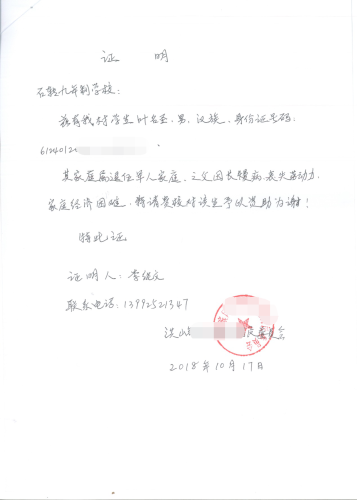 证 明
石转九年制学校：
兹有我村学生叶名圣，男，汉族，身份证号码：
6124012
其家庭属退伍军人家庭，之父因长慢病，丧失劳动力，
家庭经济困难，特请贵校对该生予以资助为谢！
特此证
证明人：李继文
联系电话：13992521347
洪山 民委员会
2018年10月17日